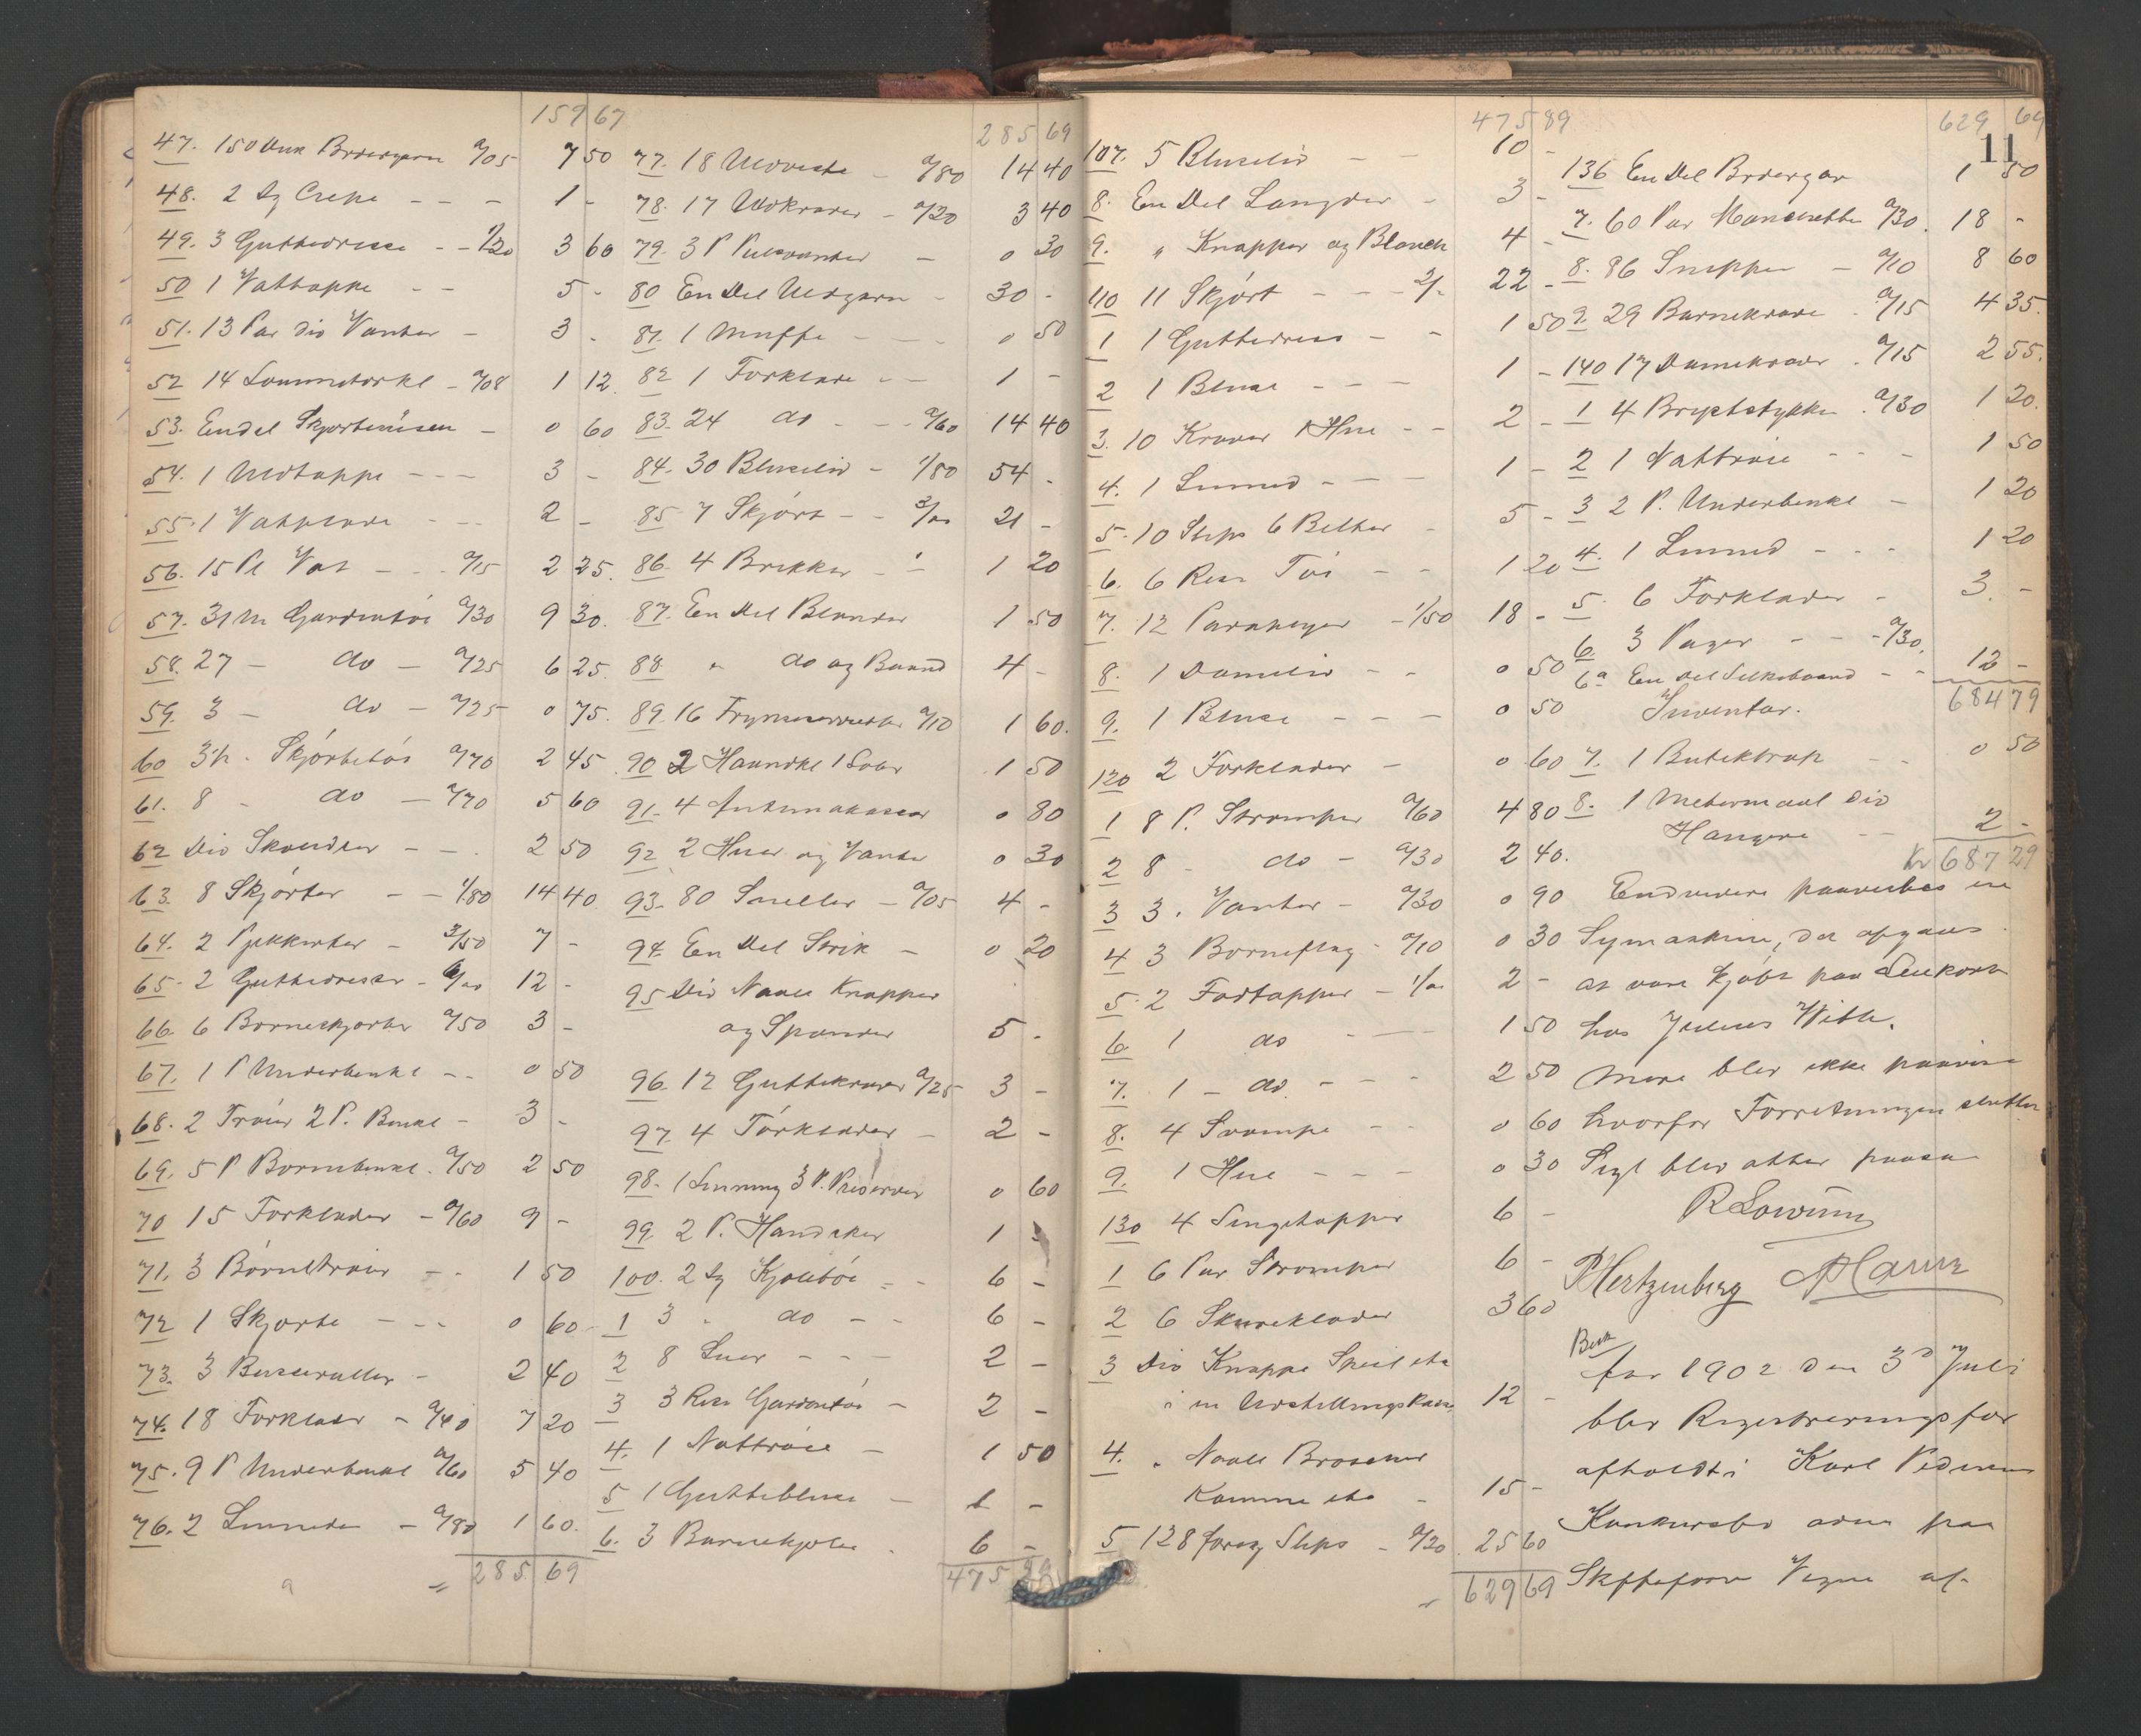 159 67
47. 150 Duk Brodergarn a/05 7 50
48. 2 Sg Crepe - - - 1 -
49. 3 Guttedresse - - 1/20 3 60
50 1 Vattappe - - 5 -
51. 13 Par div Vanter - 3 -
52 14 Lommetørkl - a/08 1 12
53. Endel Skjortelinsen - 0 60
54. 1 Uldtæppe - - - 3 -
55. 1 Vatplade - - - 2 -
56. 15 Pl Vat - - - a/15 2 25
57. 31 m Gardintøi a/30 9 30
58. 27 - do - a/25 6 25
59. 3 - do - a/25 0 75
60 3½ - Skjørtetøi a/70 2 45
61. 8 - do - a/70 5 60
62 Div Skrædder - - - 2 50
63. 8 Skjørter - - 1/80 14 40
64. 2 Pjekkerter - 3/50 7 -
65. 2 Guttedresser - 6/00 12 -
66. 6 Børneskjorter a/50 3 -
67. 1 P Underbenkl - - 0 50
68. 2 Trøier 2 P. Benkl - 3 -
69. 5 P Børnebenkl. a/50 2 50
70 15 Forklæder - a/60 9 -
71. 3 Børnetrøier - - 1 50
72 1 Skjorte - - - 0 60
73. 3 Busseruller - 2 40
74. 18 Forklæder - a/40 7 20
75. 9 P Underbenkl a/60 5 40
76. 2 Linneder - a/80 1 60
285 69
285 69
77. 18 Uldveste - a/80 14 40
78. 17 Uldkraver - a/20 3 40
79. 3 P Pulsvanter - 0 30
80 En Del Uldgarn - 30 -
81. 1 Muffe - - - 0 50
82 1 Forklæde - - 1 -
83. 24 do - - - a/60 14 40
84. 30 Bluseliv - 1/80 54 -
85 7 Skjørt - - 3/00 21 -
86. 4 Brikker - - 1 20
87. En Del Blonder 1 50
88 " do og Baand 4 -
89. 16 Frynseservietter a/10 1 60
90 2 Haandkl 1 Løber 1 50
91. 4 Antimakasser 0 80
92 2 Huer og Vanter 0 30
93. 80 Sneller - a/05 4 -
94. En Del Strik - 0 20
95 Div Naale Knapper
og Spænder 5 -
96. 12 Guttekraver a/25 3 -
97 4 Forklæder - 2 -
98. 1 Linning 3 P. 0 60
99. 2 P. Handsker 1 -
100. 2 Sg Kjoletøi - - 6 -
1 3 " do - - 6 -
2 8 Snør - - - 2 -
3 3 Res Gardintøi - 2 -
4. 1 Nattrøie - 1 50
5 1 Gutteblusse - 1 -
6. 3 Barnekjoler - 6 -
475 89
475 89
107. 5 Bluseliv - - 10 -
8. En Del Længder - 3 -
9. " Knapper og Blonder 4 -
110 11 Skjørt - - - 2/- 22 -
1 1 Guttedress - - 1 50
2 1 Bluse - - - 1 -
3. 10 Kraver 1 Hue - - 2 -
4. 1 Linned - - - 1 -
5. 10 Slips 6 Belter - 5 -
6. 6 Res Tøi - - 1 20
7. 12 Paraplyer - 1/50 18 -
8. 1 Dameliv - - 0 50
9. 1 Bluse - - - 0 50
120 2 Forklæder - 0 60
1 8 P. Strømper a/60 4 80
2 8 - do - a/30 2 40
3 3. Vanter - a/30 0 90
4 3 Børneflag - a/10 0 30
5. 2 Fodtæpper - 1/00 2 -
6 1 do - - 1 50
7. 1 - do - - - 2 50
8. 4 Svampe - - 0 60
9. 1 Hue - - - 0 30
130 4 Sengetæpper 6 -
1 6 Par Strømper 6 -
2 6 Skureklæder 3 60
3 Div Knappe Speil etc
i en Udstillingskasse 12 -
4. " Naale Broscher
Kamme etc - 15 -
5 128 forsg Slips - a/20 25 60
629 69
11
629 69
136 En Del Brodergar 1 50
7. 60 Par Manchetter a/30. 18 -
8. 86 Snipper - a/10 8 60
9. 29 Barnekrave - a/15 4 35
140 17 Damekraver - a/15 2 55
1 4 Bryststykker a/30 1 20
2 1 Nattrøie - - - 1 50
3 2 P. Underbenkl - 1 20
4. 1 Linned - - - 1 20
5. 6 Forklæder - 3. -
6. 3 Puger - - - a/30.
6a En del Silkebaand - - 12 -
684 79
Inventar.
7. 1 Butiktrap - - 0 50
8. 1 Metermaal div
Hængere - - 2 -
Kr 687 29
Endvidere paavistes en
Symaskine, der opgaves
at være kjøbt paa Leiekont
hos Julius With.
Mere blev ikke paavist
hvorfor Forretningen sluttet
Segl blev atter paasat
PHertzenberg
Aar 1902 den 3d Juli
blev Registreringsfor
afholdt i Karl Pedersens
Konkursbo aden paa
Skifteforv Vegne af